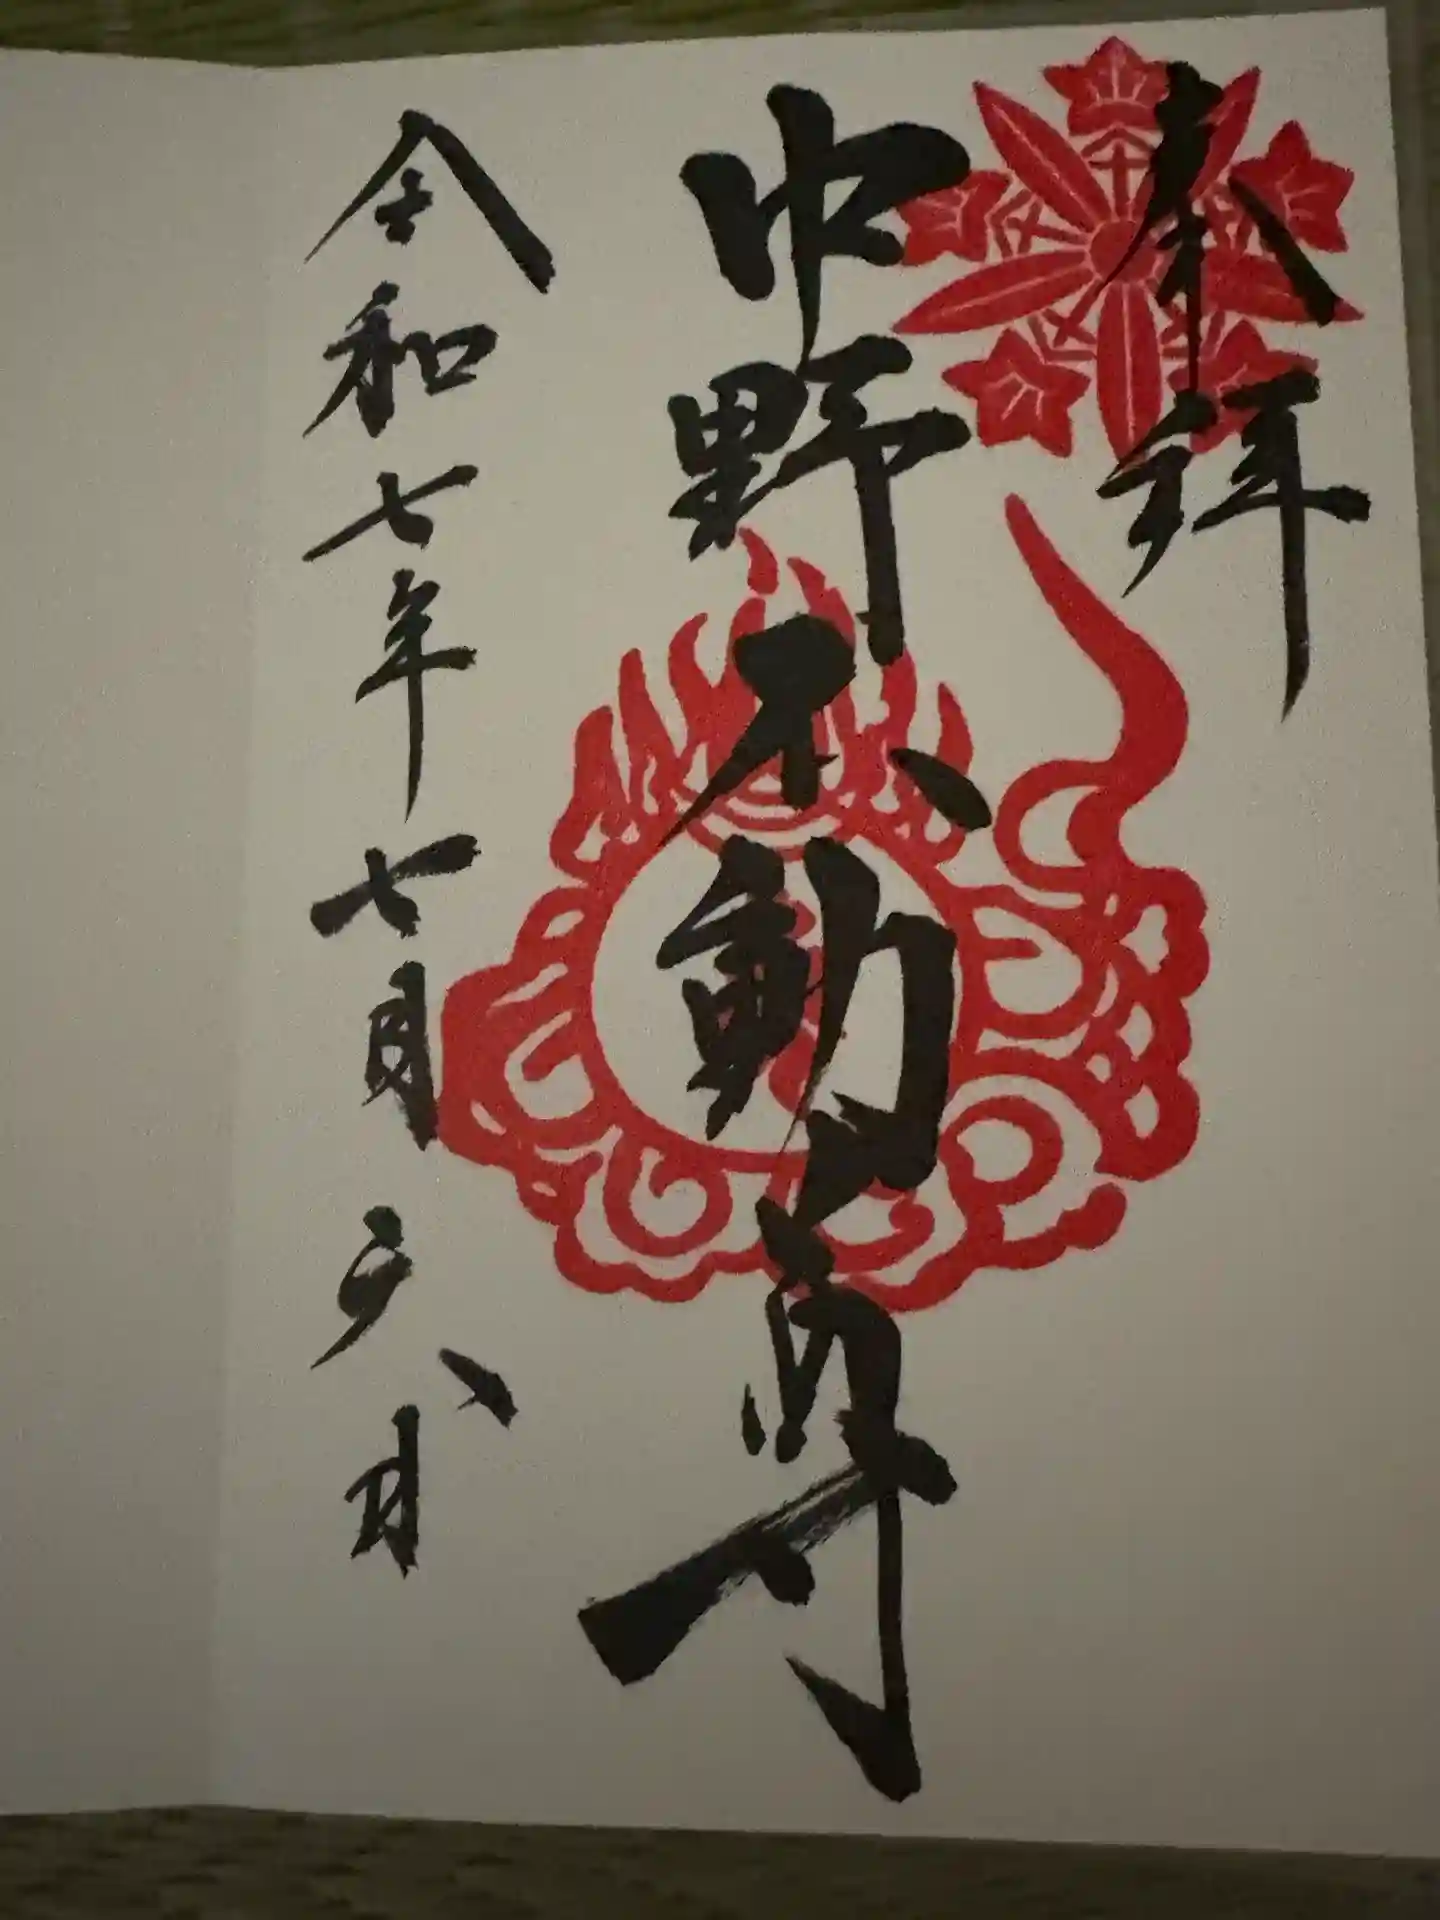 奉拝
中野不動尊
令和七年七月六日